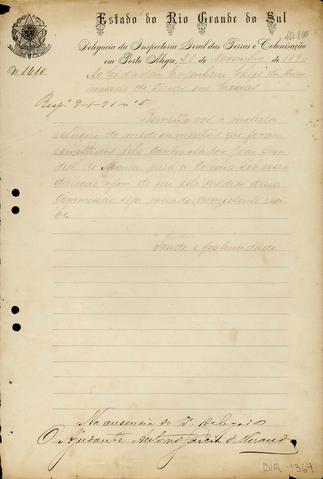 Estado do Rio Grande do Sul
Delegacia da Inspectoria Geral das Terras e Colonisação
em Porto Alegre, 21 de Novembro de 189
N. 1210
Ao Cidadão Engenheiro Chefe da Com
missão de Terras em Caxias
Resp. 9-1-91 n. 5
Remetto vos a inclusa
relação de medicamentos que foram
remettidos pelo contractador João Can
de Moura para a Colonia sob vossa
direcção afim de que pelo medico dessa
Commissão seja passado competente reci
bo.
Saude e fraternidade
Na ausencia do Delegado
O Ajudante Antonio
DIR 1364